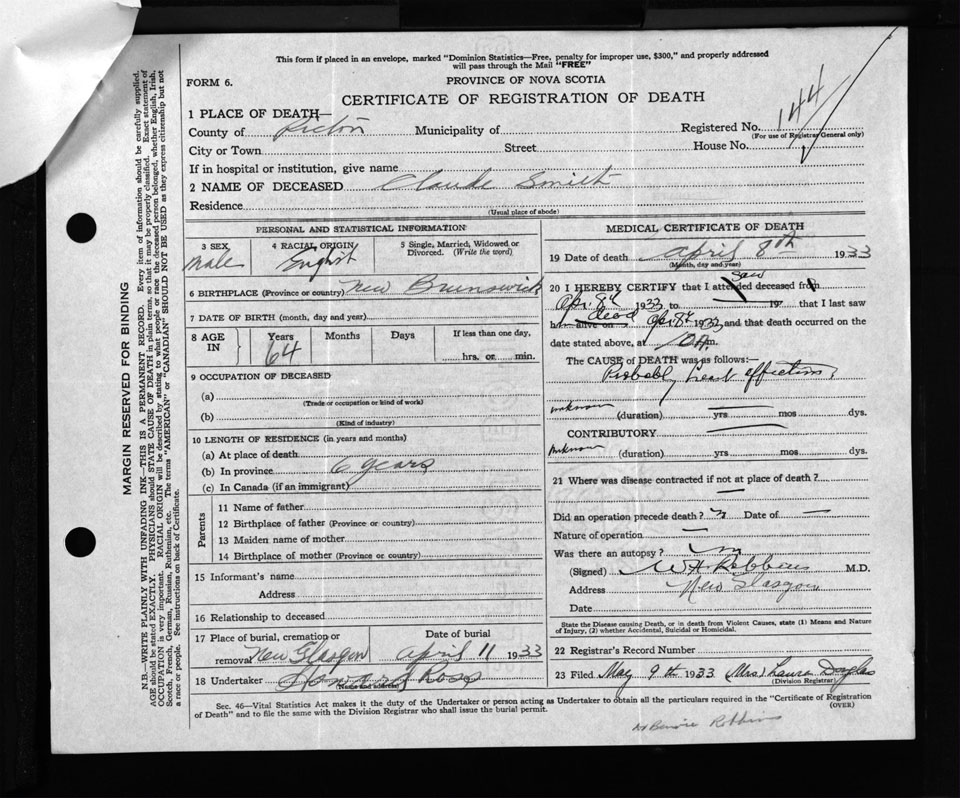 This form if placed in an envelope, marked "Dominion Statistics—Free, penalty for improper use, $300," and properly addressed
will pass through the Mail "FREE"
FORM 6.
PROVINCE OF NOVA SCOTIA
CERTIFICATE OF REGISTRATION OF DEATH
1 PLACE OF DEATH—
County of Pictou Municipality of Registered No. 144
(For use of Registrar General only)
City or Town Street House No.
If in hospital or institution, give name
2 NAME OF DECEASED Claude Smith
Residence
(Usual place of abode)
PERSONAL AND STATISTICAL INFORMATION
3 SEX male
4 RACIAL ORIGIN English
5 Single, Married, Widowed or Divorced. (Write the word)
6 BIRTHPLACE (Province or country) New Brunswick
7 DATE OF BIRTH (month, day and year)
8 AGE IN Years 64 Months Days If less than one day, hrs. or min.
9 OCCUPATION OF DECEASED
(a)
(Trade or occupation or kind of work)
(b)
(Kind of industry)
10 LENGTH OF RESIDENCE (in years and months)
(a) At place of death
(b) In province 6 years
(c) In Canada (if an immigrant)
Parents
11 Name of father
12 Birthplace of father (Province or country)
13 Maiden name of mother
14 Birthplace of mother (Province or country)
15 Informant's name
Address
16 Relationship to deceased
17 Place of burial, cremation or removal New Glasgow
Date of burial April 11 1933
18 Undertaker Howard Ross
(Name and address)
MEDICAL CERTIFICATE OF DEATH
19 Date of death April 8th 1933
(Month, day and year)
saw
20 I HEREBY CERTIFY that I attended deceased from
Apr. 8th 1933 to 19 that I last saw
dead
h alive on Apr 8th 1933 and that death occurred on the
date stated above, at 10 A m.
The CAUSE of DEATH was as follows:—
Probably heart affection
unknown (duration) yrs mos dys.
CONTRIBUTORY
unknown (duration) yrs mos dys.
21 Where was disease contracted if not at place of death?
Did an operation precede death? Date of
Nature of operation
Was there an autopsy?
(Signed) W H Robbins M.D.
Address New Glasgow
Date
State the Disease causing Death, or in death from Violent Causes, state (1) Means and Nature
of Injury, (2) whether Accidental, Suicidal or Homicidal.
22 Registrar's Record Number
23 Filed May 9th 1933 (Mrs) Laura Douglas
(Division Registrar)
Sec. 46—Vital Statistics Act makes it the duty of the Undertaker or person acting as Undertaker to obtain all the particulars required in the "Certificate of Registration
of Death" and to file the same with the Division Registrar who shall issue the burial permit.
(OVER)
Robbins
MARGIN RESERVED FOR BINDING
N.B.—WRITE PLAINLY WITH UNFADING INK—THIS IS A PERMANENT RECORD. Every item of information should be carefully supplied.
AGE should be stated EXACTLY. PHYSICIANS should STATE CAUSE OF DEATH in plain terms, so that it may be properly classified. Exact statement of
OCCUPATION is very important. RACIAL ORIGIN will be described by stating to what people or race the deceased person belonged, whether English, Irish,
Scotch, French, German, Russian, Ruthenian, etc. The terms "AMERICAN" or "CANADIAN" SHOULD NOT BE USED as they express citizenship but not
a race or people. See instructions on back of Certificate.